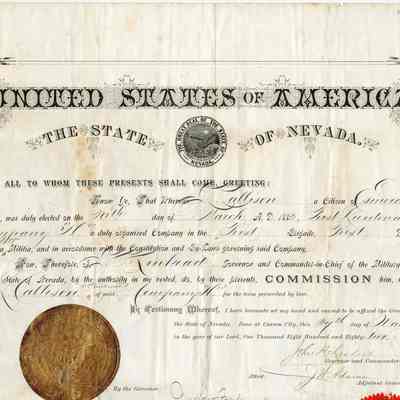 UNITED STATES OF AMERICA
THE STATE OF NEVADA.
THE GREAT SEAL OF THE STATE OF NEVADA
ALL TO WHOM THESE PRESENTS SHALL COME, GREETING:
Know Ye, That Whereas Callison a Citizen of
was duly elected on the day of March A.D. 188 First Lieutenant
Company H a duly organized Company in the First Brigade, First
Militia, and in accordance with the Constitution and By-Laws governing said Company.
Now, Therefore, I, Kinkead Governor and Commander-in-Chief of the Military
State of Nevada, by the authority in me vested, do, by these presents, COMMISSION him
Callison of said Company H for the term prescribed by law.
In Testimony Whereof, I have hereunto set my hand and caused to be affixed the Great
the State of Nevada. Done at Carson City, this day of
in the year of our Lord, One Thousand Eight Hundred and Eighty-
Governor and Commander
Attest
By the Governor
Adjutant General